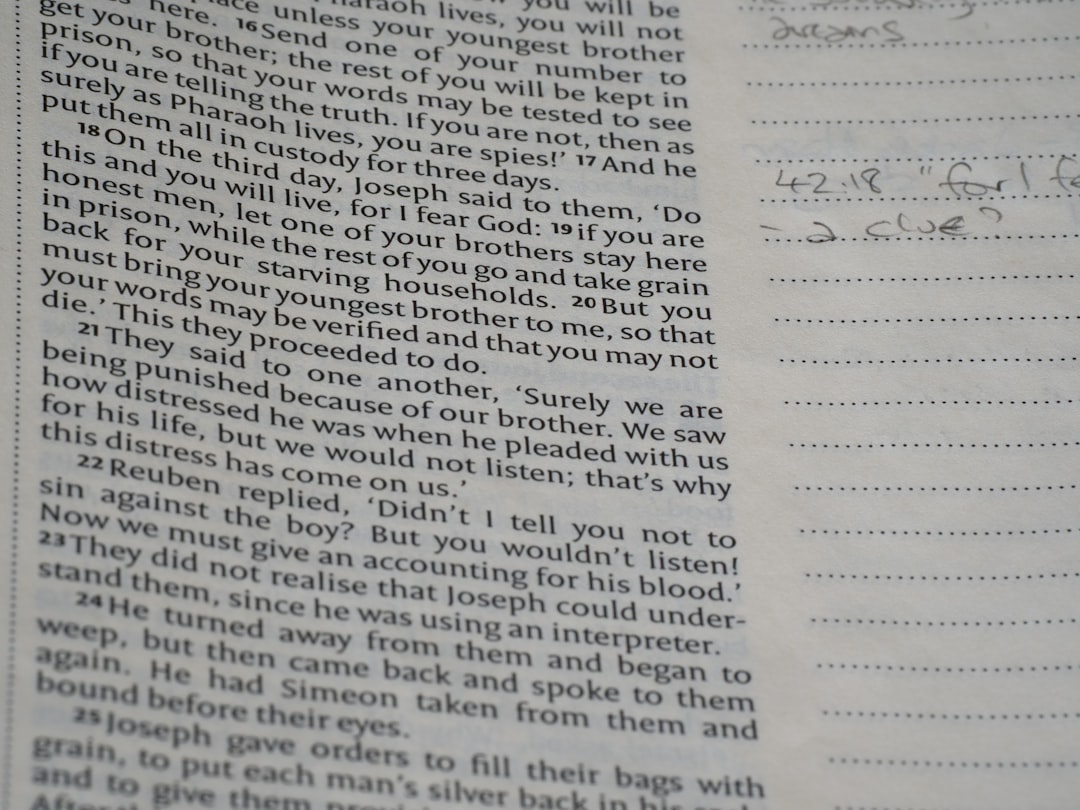 you will be
Pharaoh lives, you will not
unless your youngest brother
here. 16 Send one of your number to
get your brother; the rest of you will be kept in
prison, so that your words may be tested to see
if you are telling the truth. If you are not, then as
surely as Pharaoh lives, you are spies!’ 17 And he
put them all in custody for three days.
18 On the third day, Joseph said to them, ‘Do
this and you will live, for I fear God: 19 if you are
honest men, let one of your brothers stay here
in prison, while the rest of you go and take grain
back for your starving households. 20 But you
must bring your youngest brother to me, so that
your words may be verified and that you may not
die.’ This they proceeded to do.
21 They said to one another, ‘Surely we are
being punished because of our brother. We saw
how distressed he was when he pleaded with us
for his life, but we would not listen; that’s why
this distress has come on us.’
22 Reuben replied, ‘Didn’t I tell you not to
sin against the boy? But you wouldn’t listen!
Now we must give an accounting for his blood.’
23 They did not realise that Joseph could under-
stand them, since he was using an interpreter.
24 He turned away from them and began to
weep, but then came back and spoke to them
again. He had Simeon taken from them and
bound before their eyes.
25 Joseph gave orders to fill their bags with
grain, to put each man’s silver back in his
and to give them
dreams
42:18 "for I
- a clue?